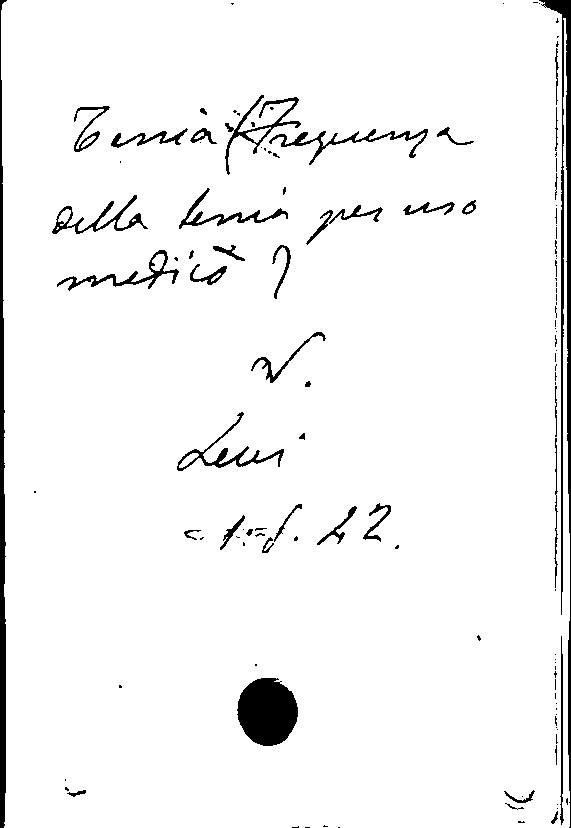 Tenia (Frequenza
della tenia per uso
medico)
V.
Levi
22.